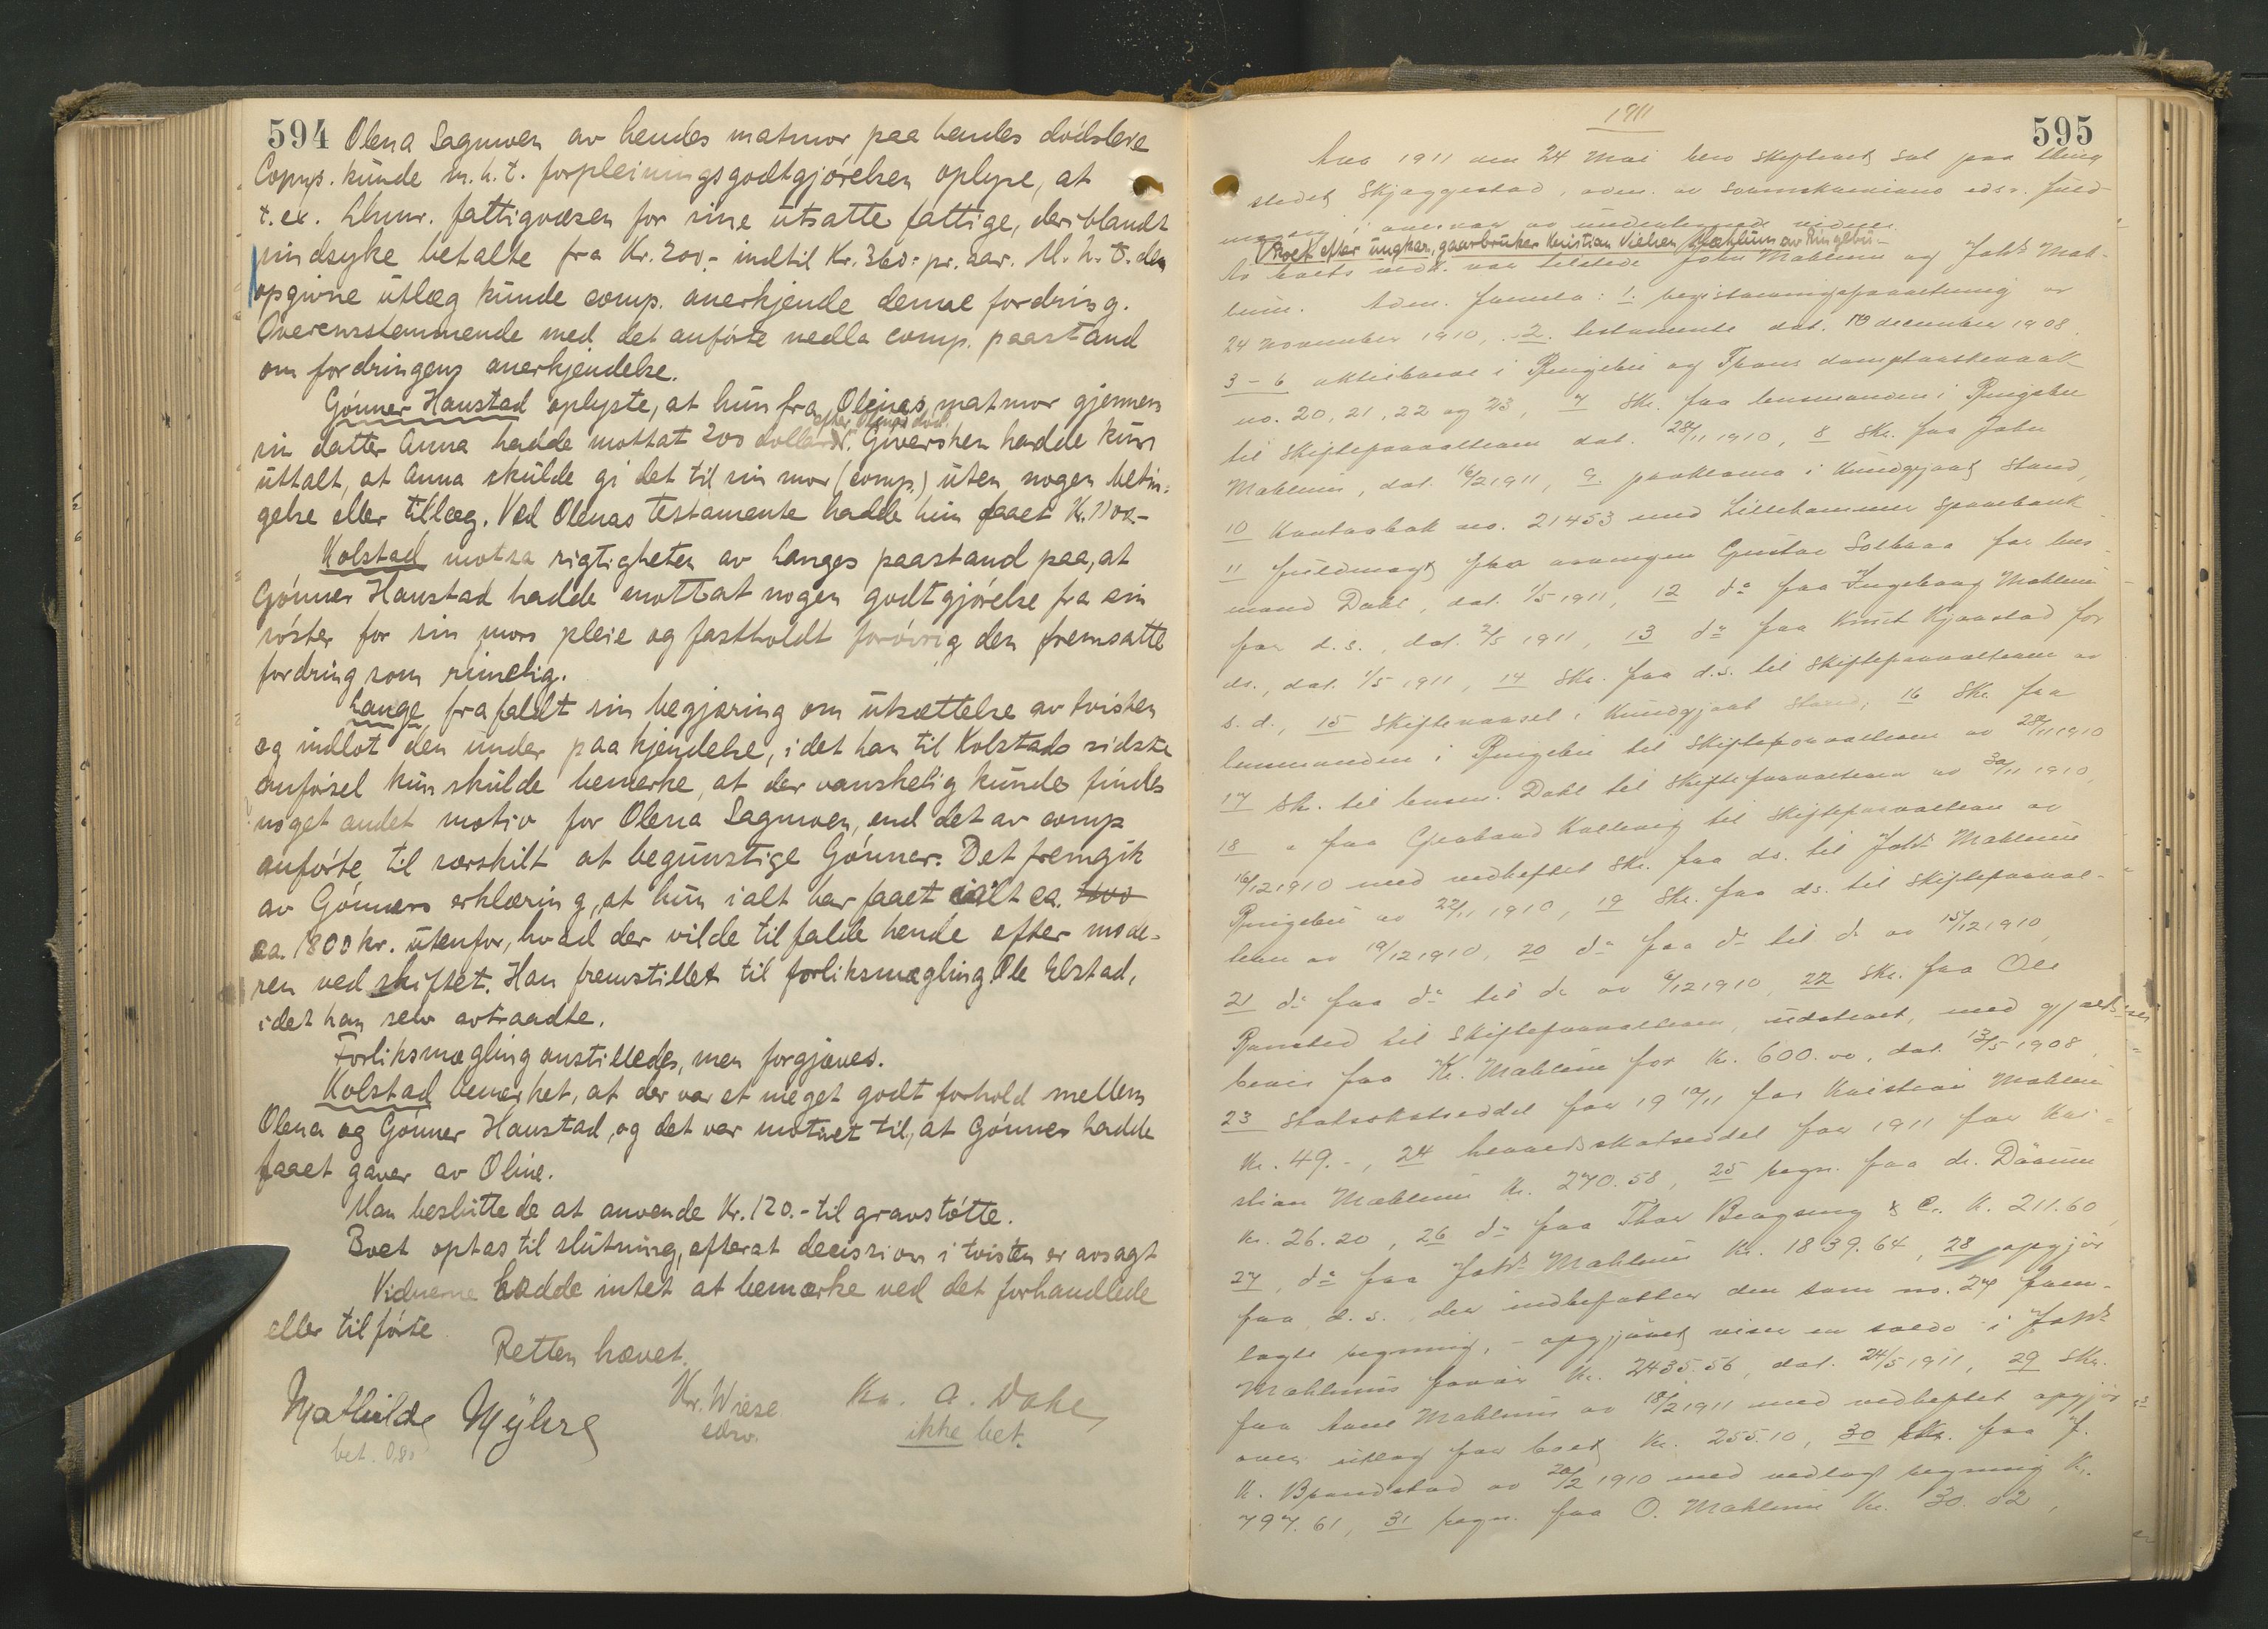 594 Olena Sagmoen av hendes matmor paa hendes dødsleie
Comp. kunde m. h. t. forpleiningsgodtgjørelsen oplyse, at
t. ex. Lhmr. fattigvæsen for sine utsatte fattige, deriblandt
sindsyke betalte fra Kr. 200,- indtil Kr. 360,- pr. aar. M. h. t. den
opgivne utlæg kunde comp. anerkjende denne fordring.
Overensstemmende med det anførte nedla comp. paastand
om fordringens anerkjendelse.
Gönner Haustad oplyste, at hun fra Olenas matmor gjennem
efter Olenas død.
sin datter Anna hadde mottat 200 dollars. Giversken hadde kun
uttalt, at Anna skulde gi det til sin mor (comp.) uten nogen betin-
gelse eller tillæg. Ved Olenas testamente hadde hun faaet Kr.
Kolstad motsa rigtigheten av Langes paastand paa, at
Gönner Haustad hadde mottat nogen godtgjørelse fra sin
søster for sin mors pleie og fastholdt forøvrig den fremsatte
fordring som rimelig.
Lange frafaldt sin begjæring om utsættelse av tvisten
og indlot den under paakjendelse, idet han til Kolstads sidste
anførsel kun skulde bemerke, at der vanskelig kunde findes
noget andet motiv for Olena Sagmoen, end det av comp
anførte til særskilt at begunstige Gönner. Det fremgik
av Gönners erklæring, at hun ialt har faaet ialt ca.
ca. 1800 kr. utenfor, hvad der vilde tilfalde hende efter mode-
ren ved skiftet. Han fremstillet til forliksmægling Ole Elstad,
idet han selv avtraadte.
Forliksmægling anstilledes, men forgjæves.
Kolstad bemerket, at der var et meget godt forhold mellem
Olena og Gönner Haustad, og det var motivet til, at Gönner hadde
faaet gaver av Oline.
Man besluttede at anvende Kr. 120.- til gravstøtte.
Boet optas til slutning, efterat decision i tvisten er avsagt
Vidnerne hadde intet at bemærke ved det forhandlede
eller tilførte.
Retten hævet.
Mathilde Myhre Kr. Wiese Kr. A. Dahl
bet. 0,80 edsv. ikke bet.
1911
595
Aar 1911 den 24 Mai blev skifteret sat paa thing
stedet Skjæggestad, adm. av sorenskriverens edsv. fuld-
mægtig i overvær av undertegnede vidner.
Boet efter ungkar, gaardbruker Kristian Nielsen Mæhlum av Ringebu
I boets vedk. var tilstede John Mæhlum og Johs Mæh-
lum. Adm. fremla: 1. registreringsforretning av
24 november 1910, 2. testamente dat. 10 december 1908,
3 - 6 aktiebreve i Ringebu og Frons damptærskeverk
no. 20, 21, 22 og 23, 7 Skr. fra lensmanden i Ringebu
til skifteforvalteren dat. 28/11 1910, 8 Skr. fra John
Mæhlum, dat. 16/2 1911, 9 proklama i kundgjort stand,
10 Kontrabok no. 21453 med Lillehammer sparebank
11 fuldmagt fra arvingen Gustav Solbraa for lens-
mand Dahl, dat. 1/5 1911, 12 do fra Ingeborg Mæhlum
for d.s., dat. 2/5 1911, 13 do fra Knut Kjorstad for
ds., dat. 1/5 1911, 14 Skr. fra d.s. til skifteforvalteren av
s. d., 15 skiftevarsel i kundgjort stand, 16 Skr. fra
lensmanden i Ringebu til skifteforvalteren av 28/11 1910
17 Skr. til lensm. Dahl til skifteforvalteren av 30/11 1910,
18 " fra til skifteforvalteren av
16/12 1910 med vedheftet skr. fra ds. til Johs Mæhlum
Ringebu av 22/11 1910, 19 Skr. fra ds. til skifteforval-
teren av 19/12 1910, 20 do fra do til do av 15/12 1910,
21 do fra do til do av 6/12 1910, 22 Skr. fra Ole
til skifteforvalteren, udatert, med gjelds-
bevis fra Kr. Mæhlum for kr. 600.00, dat. 13/5 1908,
23 Statsskatseddel for 19 10/11 for Kristian Mæhlum
kr. 49.-, 24 herredsskatseddel for 1911 for Kri-
stian Mæhlum kr. 270.58, 25 regn. fra dr. Daarum
kr. 26.20, 26 do fra Thor & Co. kr. 211.60,
27 do fra Johs Mæhlum kr. 1839.64, 28 opgjör
fra d.s., der indbefatter den som no. 27 frem-
lagte regning, - opgjöret viser en saldo i Johs
Mæhlums favör kr. 2435.56, dat. 24/5 1911, 29 Skr.
fra Mæhlum av 18/2 1911 med vedheftet opgjör
over utlæg for boet kr. 255.10, 30 Skr. fra J.
K. av 20/2 1910 med vedlagt regning kr.
797.61, 31 regn. fra O. Mæhlum kr. 30.02,